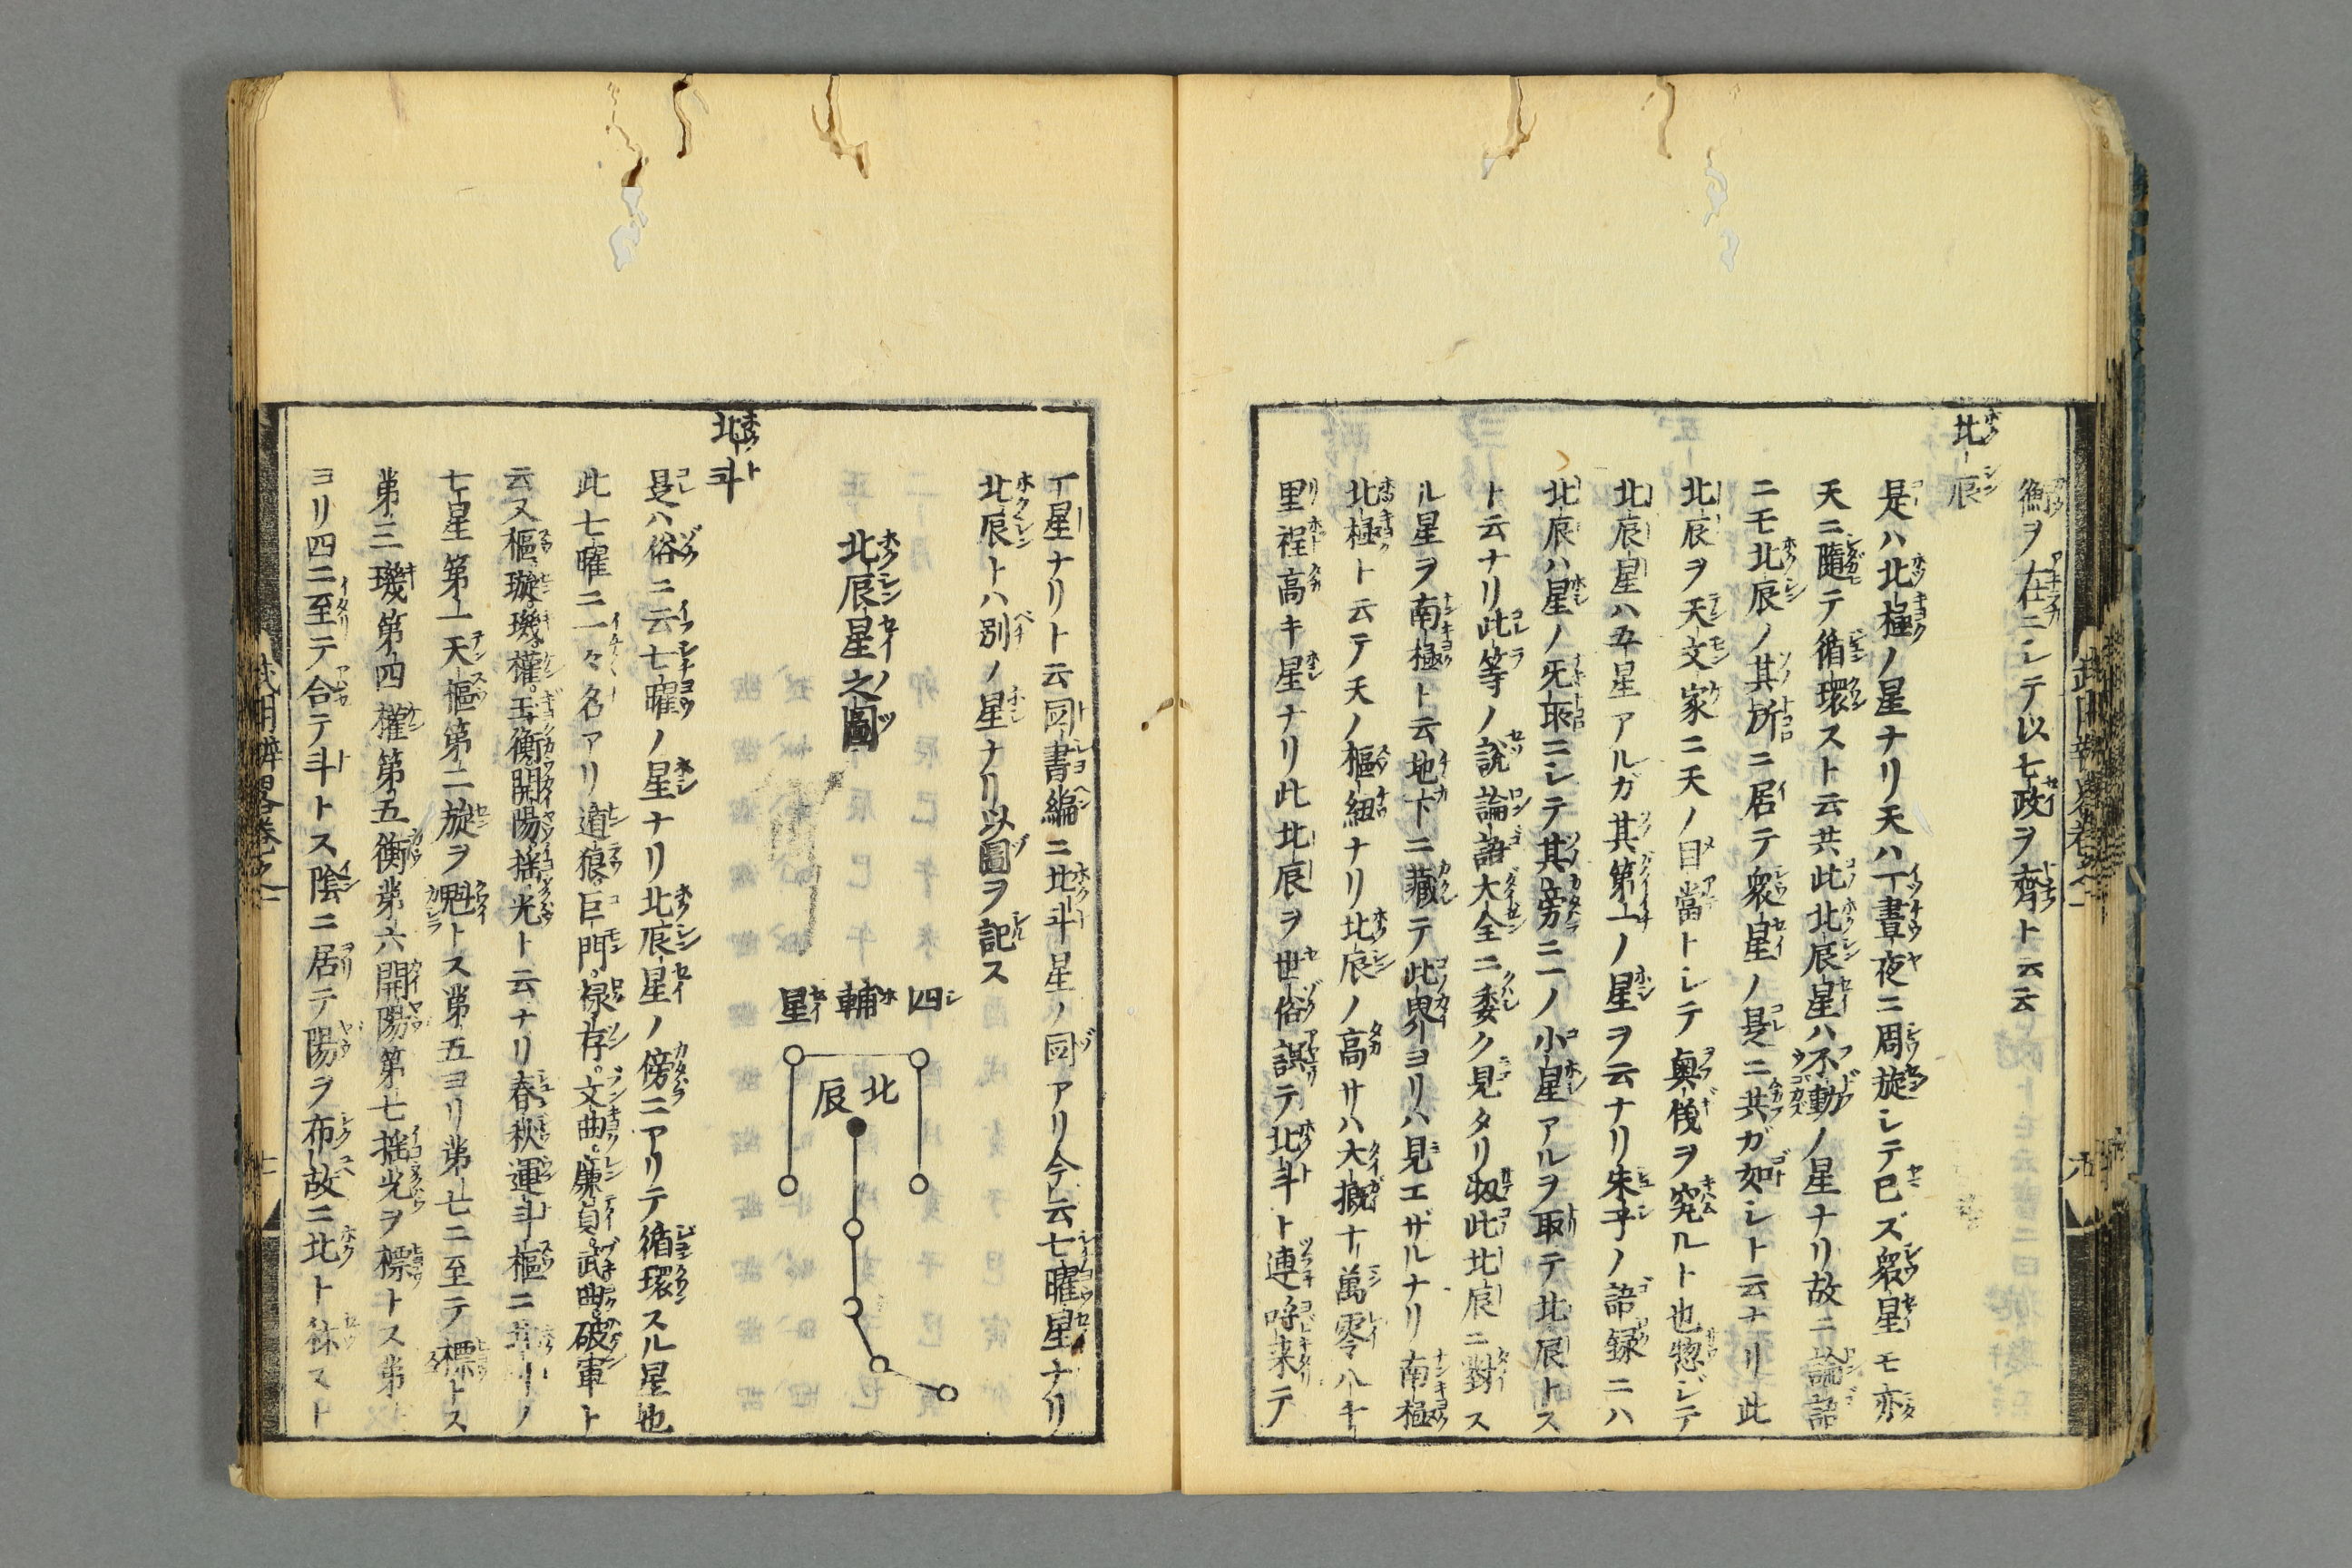 衡ヲ在ニシテ以七政ヲ齊ト云云
北辰
是ハ北極ノ星ナリ天ハ一晝夜ニ周旋シテ已ズ衆星モ亦
天ニ隨テ循環スト云共此北辰星ハ不動ノ星ナリ故ニ論語
ニモ北辰ノ其所ニ居テ衆星ノ是ニ共ガ如シト云ナリ此
北辰ヲ天文家ニ天ノ目當トシテ奥儀ヲ究ルト也惣ジテ
北辰星ハ五星アルガ其第一ノ星ヲ云ナリ朱子ノ語録ニハ
北辰ハ星ノ无取ニシテ其旁ニ一ノ小星アルヲ取テ北辰トス
ト云ナリ此等ノ説論語大全ニ委ク見タリ扨此北辰ニ對ス
ル星ヲ南極ト云地下ニ藏テ此界ヨリハ見エザルナリ南極
北極ト云テ天ノ樞紐ナリ北辰ノ高サハ大概十萬零八千
里程高キ星ナリ此北辰ヲ世俗誤テ北斗ト連呼来テ
一星ナリト云図書編ニ北斗星ノ図アリ今云七曜星ナリ
北辰トハ別ノ星ナリ以圖ヲ記ス
北辰星之圖
四輔星
北辰
北斗
是ハ俗ニ云七曜ノ星ナリ北辰星ノ傍ニアリテ循環スル星也
此七曜ニ一々名アリ貪狼。巨門。禄存。文曲。廉貞。武曲。破軍ト
云又樞。璇。璣。權。玉衡。開陽。揺光ト云ナリ春秋運斗樞ニ北斗ノ
七星第一天樞第二旋ヲ魁トス第五ヨリ第七ニ至テ標トス
第三璣第四權第五衡第六開陽第七揺光ヲ標トス第一
ヨリ四ニ至テ合テ斗トス陰ニ居テ陽ヲ布故ニ北ト称スト